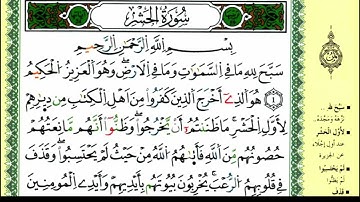 سُورَةُ الْحَشْرِ
بِسْمِ اللَّهِ الرَّحْمَٰنِ الرَّحِيمِ
سَبَّحَ لِلَّهِ مَا فِي السَّمَٰوَٰتِ وَمَا فِي الْأَرْضِ ۖ وَهُوَ الْعَزِيزُ الْحَكِيمُ
۝١ هُوَ الَّذِي أَخْرَجَ الَّذِينَ كَفَرُوا مِنْ أَهْلِ الْكِتَٰبِ مِن دِيَٰرِهِمْ
لِأَوَّلِ الْحَشْرِ ۚ مَا ظَنَنتُمْ أَن يَخْرُجُوا ۖ وَظَنُّوا أَنَّهُم مَّانِعَتُهُمْ
حُصُونُهُم مِّنَ اللَّهِ فَأَتَىٰهُمُ اللَّهُ مِنْ حَيْثُ لَمْ يَحْتَسِبُوا ۖ وَقَذَفَ
فِي قُلُوبِهِمُ الرُّعْبَ ۚ يُخْرِبُونَ بُيُوتَهُم بِأَيْدِيهِمْ وَأَيْدِي الْمُؤْمِنِينَ
سَبَّحَ لِلَّهِ
لِأَوَّلِ الْحَشْرِ
لَمْ يَحْتَسِبُوا
قَذَفَ